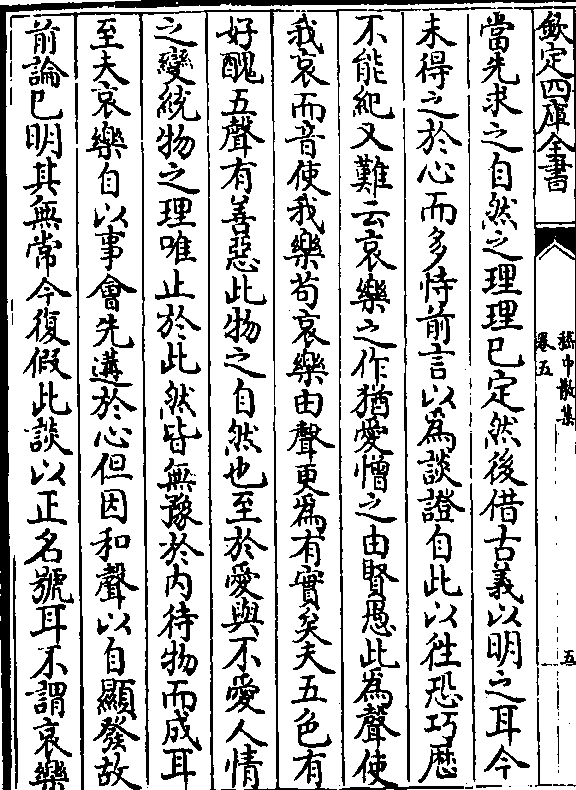 欽定四庫全書
嵇中散集
卷五
五
當先求之自然之理理已定然後借古義以明之耳今
未得之於心而多恃前言以為談證自此以往恐巧歴
不能紀又難云哀樂之作猶愛憎之由賢愚此為聲使
我哀而音使我樂苟哀樂由聲更為有實矣夫五色有
好醜五聲有善惡此物之自然也至於愛與不愛人情
之變統物之理唯止於此然皆無豫於内待物而成耳
至夫哀樂自以事會先遘於心但因和聲以自顯發故
前論已明其無常今復假此談以正名號耳不謂哀樂